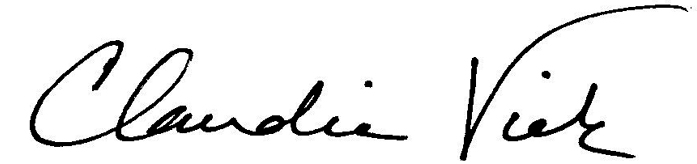 Claudie Viek